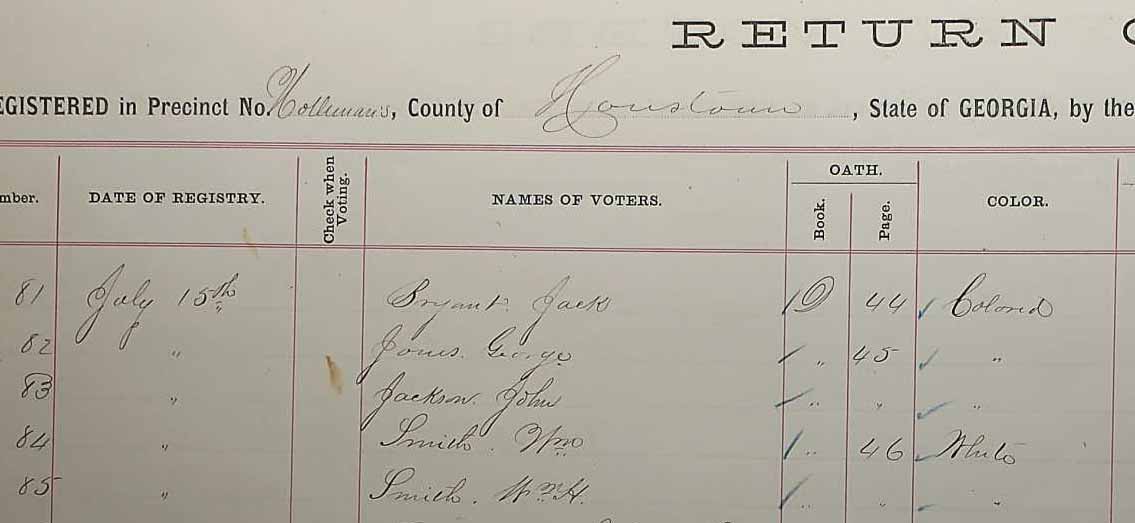 RETURN
EGISTERED in Precinct No. Hollemans, County of Houstown, State of GEORGIA, by the
mber. DATE OF REGISTRY. Check when Voting. NAMES OF VOTERS. OATH. Book. Page. COLOR.
81 July 15th Bryant. Jack 44 Colored
82 " Jones. George " 45 "
83 " Jackson. John " " "
84 " Smith. Wm " 46 White
85 " Smith. Wm H. " " "